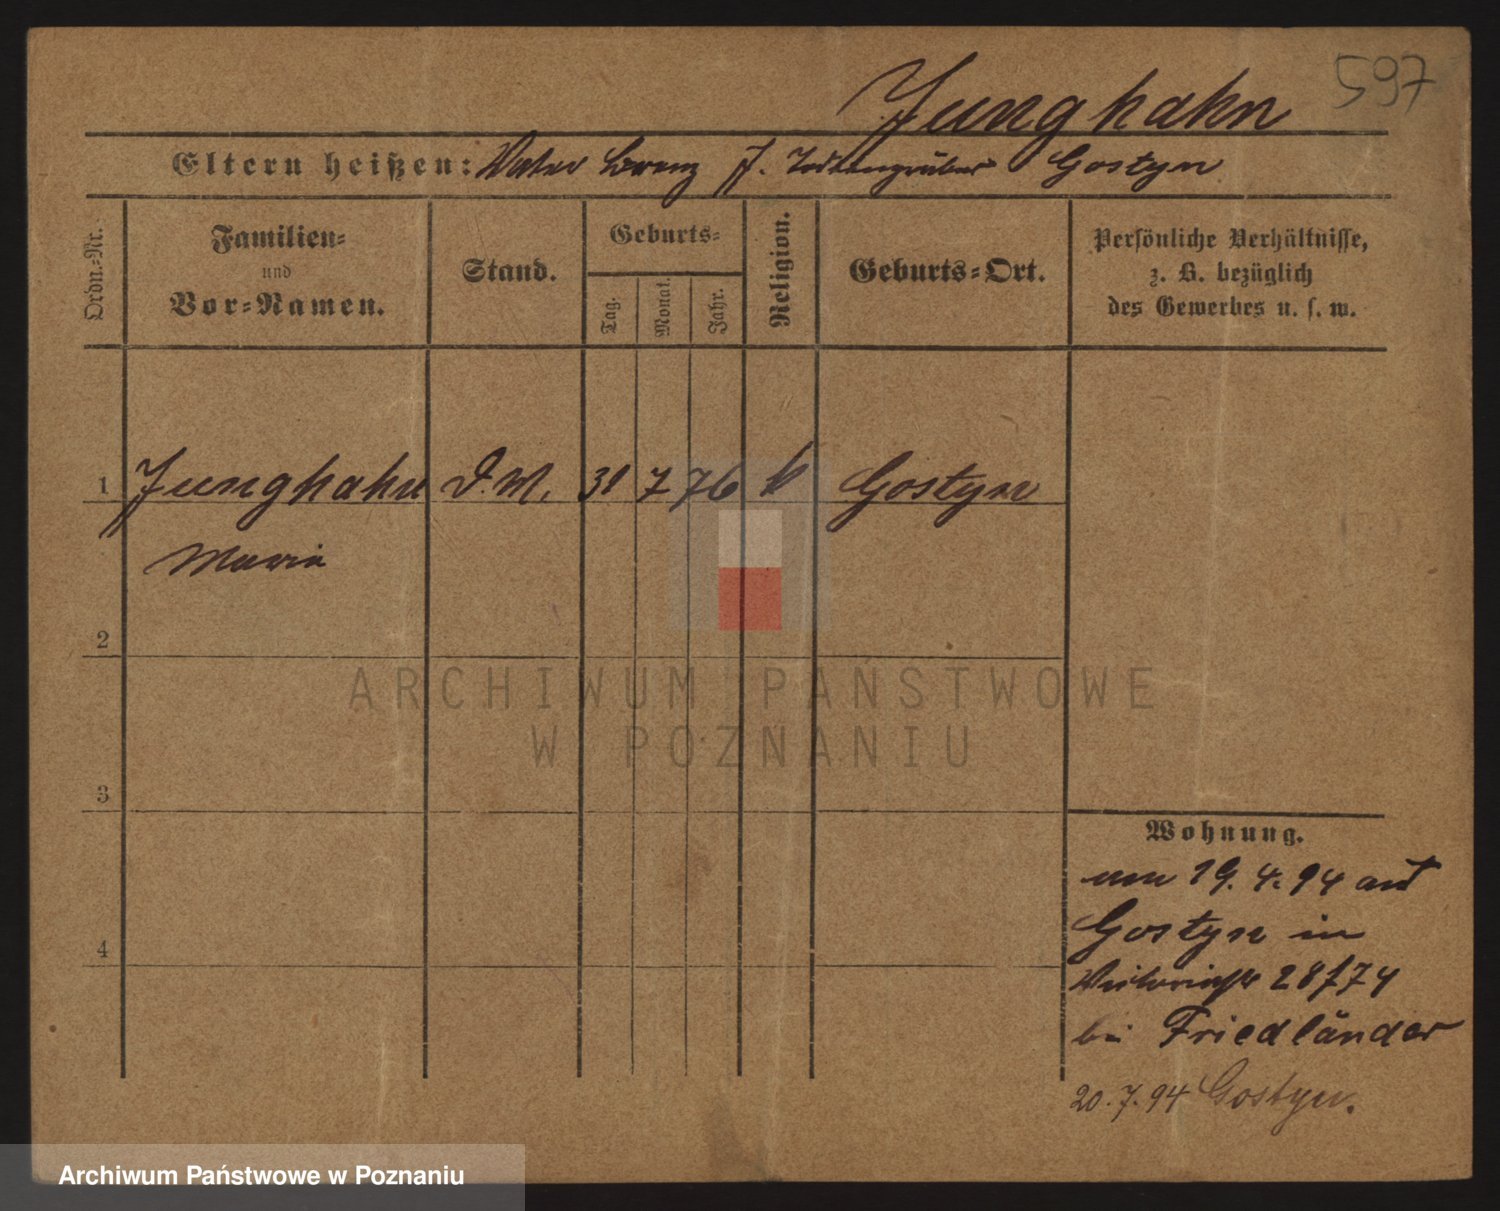 597
Junghahn
Eltern heißen: Vater Lorenz J. Todtengräber Gostyn
Ordn.-Nr.
Familien-
und
Vor-Namen.
Stand.
Geburts-
Tag.
Monat.
Jahr.
Religion.
Geburts-Ort.
Persönliche Verhältnisse,
z. B. bezüglich
des Gewerbes u. s. w.
1 Junghahn D.M. 31 7 76 k Gostyn
Maria
2
ARCHIWUM PAŃSTWOWE
W POZNANIU
3
Wohnung.
am 19. 4. 94 aus
Gostyn in
4
28/74
bei Friedländer
20. 7. 94 Gostyn.
Archiwum Państwowe w Poznaniu